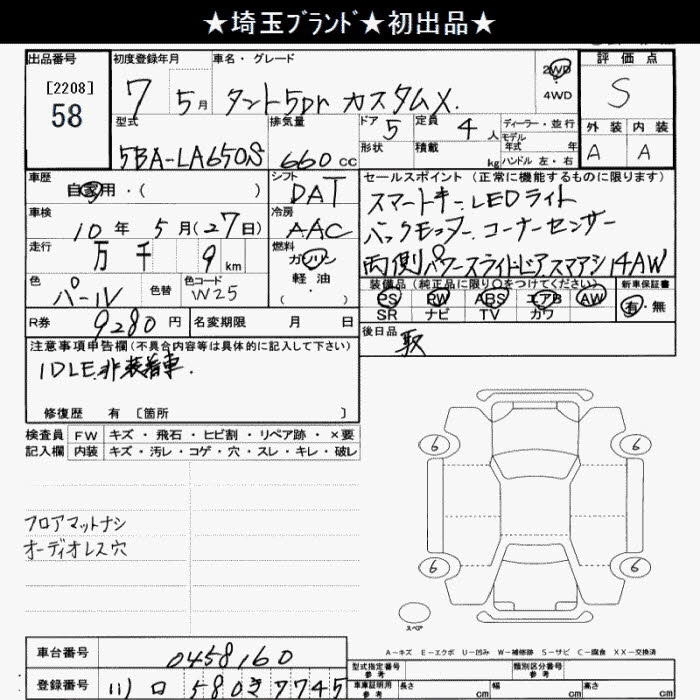 ★埼玉ﾌﾞﾗﾝﾄﾞ★初出品★
出品番号
[2208]
58
初度登録年月
7 5月
車名・グレード
タント5Dr カスタムX.
2WD
4WD
評価点
S
外装 内装
A A
型式
5BA-LA650S
排気量
660cc
ドア
5
形状
定員
4人
積載
kg
ディーラー・並行
モデル
年式 年
ハンドル 左・右
車歴
自家用・( )
シフト
DAT
車検
10年 5月(27日)
冷房
AAC
走行
万 千 9km
燃料
ガソリン
軽油
・( )
色
パール
色替
色コード
W25
R券
9280円
名変期限 月 日
セールスポイント (正常に機能するものに限ります)
スマートキー. LEDライト
バックモニター. コーナーセンサー
両側パワースライドドア スマアシ 14AW
装備品(純正品に限り○をつけてください)
PS PW ABS エアB AW
SR ナビ TV カワ
新車保証書
有・無
後日品
取
注意事項申告欄(不具合内容等は具体的に記入して下さい)
IDLE.非装着車.
修復歴 有 〔箇所 〕
検査員
記入欄
FW キズ・飛石・ヒビ割・リペア跡・×要
内装 キズ・汚レ・コゲ・穴・スレ・キレ・破レ
フロアマットナシ
オーディオレス穴
6 6
6 6
スペア
A－キズ E－エクボ U－凹み W－補修跡 S－サビ C－腐食 XX－交換済
車台番号
0458160
登録番号
川口 580 き 7745
型式指定番号
参考
類別区分番号
参考
車庫証明用
参考
長さ cm
幅 cm
高さ cm